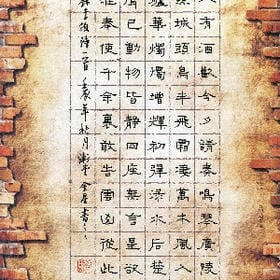 人有酒歡今夕請奏鳴琴廣陵
城頭烏半飛霜淒萬木風入
爐華燭燭增輝初彈淥水後楚
聲已動物皆靜四座無言星欲
淮奉使千余裏敢告雲山從此
詩一首 年秋月 書